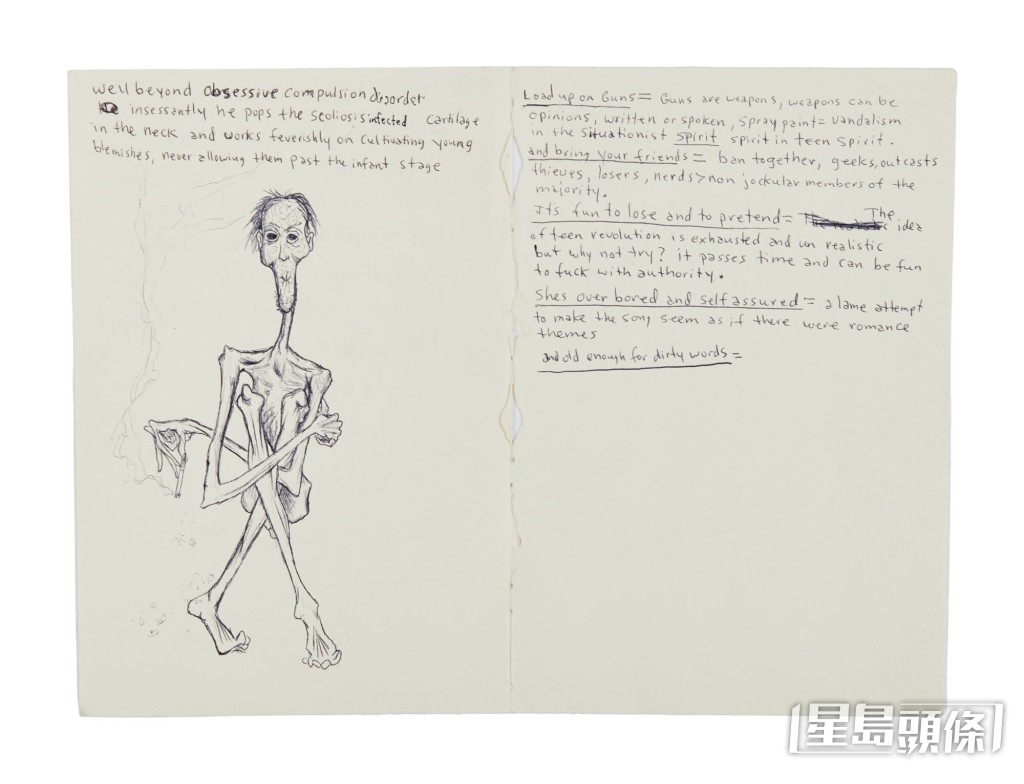 well beyond obsessive compulsion disorder
insessantly he pops the scoliosis infected cartilage
in the neck and works feverishly on cultivating young
blemishes, never allowing them past the infant stage
Load up on Guns = Guns are weapons, weapons can be
opinions, written or spoken, Spray paint = Vandalism
in the Situationist spirit spirit in teen Spirit.
and bring your friends = ban together, geeks, outcasts
thieves, losers, nerds > non jockular members of the
majority.
It's fun to lose and to pretend = The idea
of teen revolution is exhausted and un realistic
but why not try? it passes time and can be fun
to fuck with authority.
Shes over bored and self assured = a lame attempt
to make the song seem as if there were romance
themes
and old enough for dirty words =
星島頭條